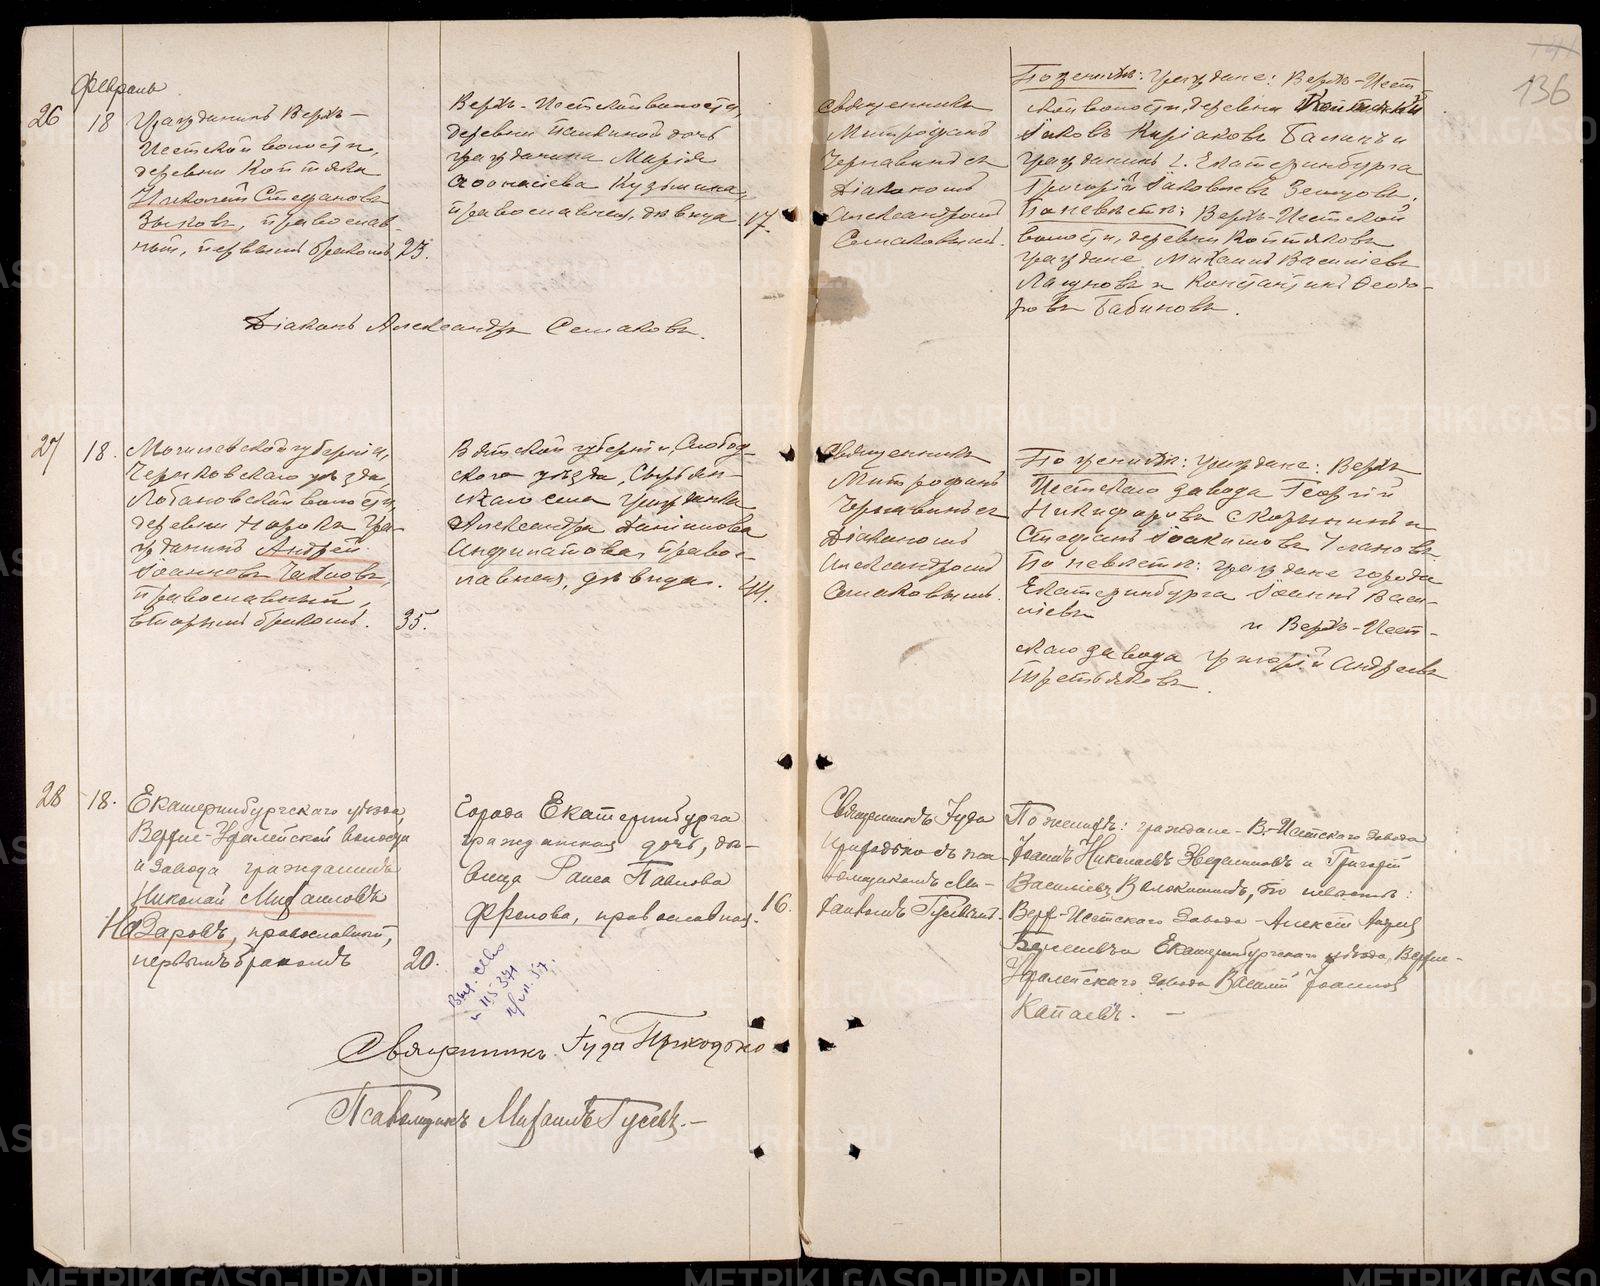 136
Февраль
26
18
Гражданинъ Верхъ-
Исетской волости,
деревни Коптяки
Николай Стефановъ
Зыковъ, православ-
ный, первымъ бракомъ.
23.
Верхъ-Исетской волости,
деревни Палкиной дочь
гражданина Марія
Аѳонасіева Кузьмина,
православная, дѣвица.
17.
Священникъ
Митрофанъ
Чернавинъ съ
Діакономъ
Александромъ
Семаковымъ.
По женихѣ: граждане: Верхъ-Исет
ской волости, деревни
Іаковъ Киріаковъ Балинъ и
гражданинъ г. Екатеринбурга
Григорій Іаковлевъ Земцовъ.
По невѣстѣ: Верхъ-Исетской
волости, деревни Коптяковъ
граждане Михаилъ Василіевъ
Лагуновъ и Константинъ Ѳеодо-
ровъ Бабиновъ.
Діаконъ Александръ Семаковъ.
27
18.
Могилевской губерніи,
Чериковскаго уѣзда,
Лобановской волости,
деревни Норки гра-
жданинъ Андрей
Іоанновъ
православный,
вторымъ бракомъ.
35.
Вятской губерніи, Слобод-
ского уѣзда,
скаго села гражданка
Александра Даніилова
Анфилатова, правос-
лавная, дѣвица.
44.
Священникъ
Митрофанъ
Чернавинъ съ
Діакономъ
Александромъ
Семаковымъ.
По женихѣ: граждане: Верхъ
Исетскаго завода Георгій
Никифоровъ Скорынинъ и
Стефанъ Іоакимовъ Улановъ
По невѣстѣ: граждане города
Екатеринбурга Іоаннъ Васи-
ліевъ и Верхъ-Исет-
скаго завода Григорій Андреевъ
Третьяковъ.
28
18.
Екатеринбургскаго уѣзда,
Верхне-Уфалейской волости
и завода гражданинъ
Николай Михаиловъ
Назаровъ, православный,
первымъ бракомъ
20.
Города Екатеринбурга
гражданская дочь, дѣ-
вица Раиса Павлова
Фролова, православная.
16.
Священникъ Іуда
Приходько съ пса-
ломщикомъ Ми-
хаиломъ Гусевымъ.
По женихѣ: граждане - В.-Исетского завода
Іоаннъ Николаевъ Звездинъ и Григорій
Василіевъ Волокитинъ, по невѣстѣ:
Верх-Исетского завода - Алексѣй Андреевъ
Екатеринбургскаго уѣзда, Верхне-
Уфалейскаго завода Василій Іоанновъ
Катаевъ. -
Священникъ Іуда Приходько
Псаломщикъ Михаилъ Гусевъ. -
METRIKI.GASO-URAL.RU